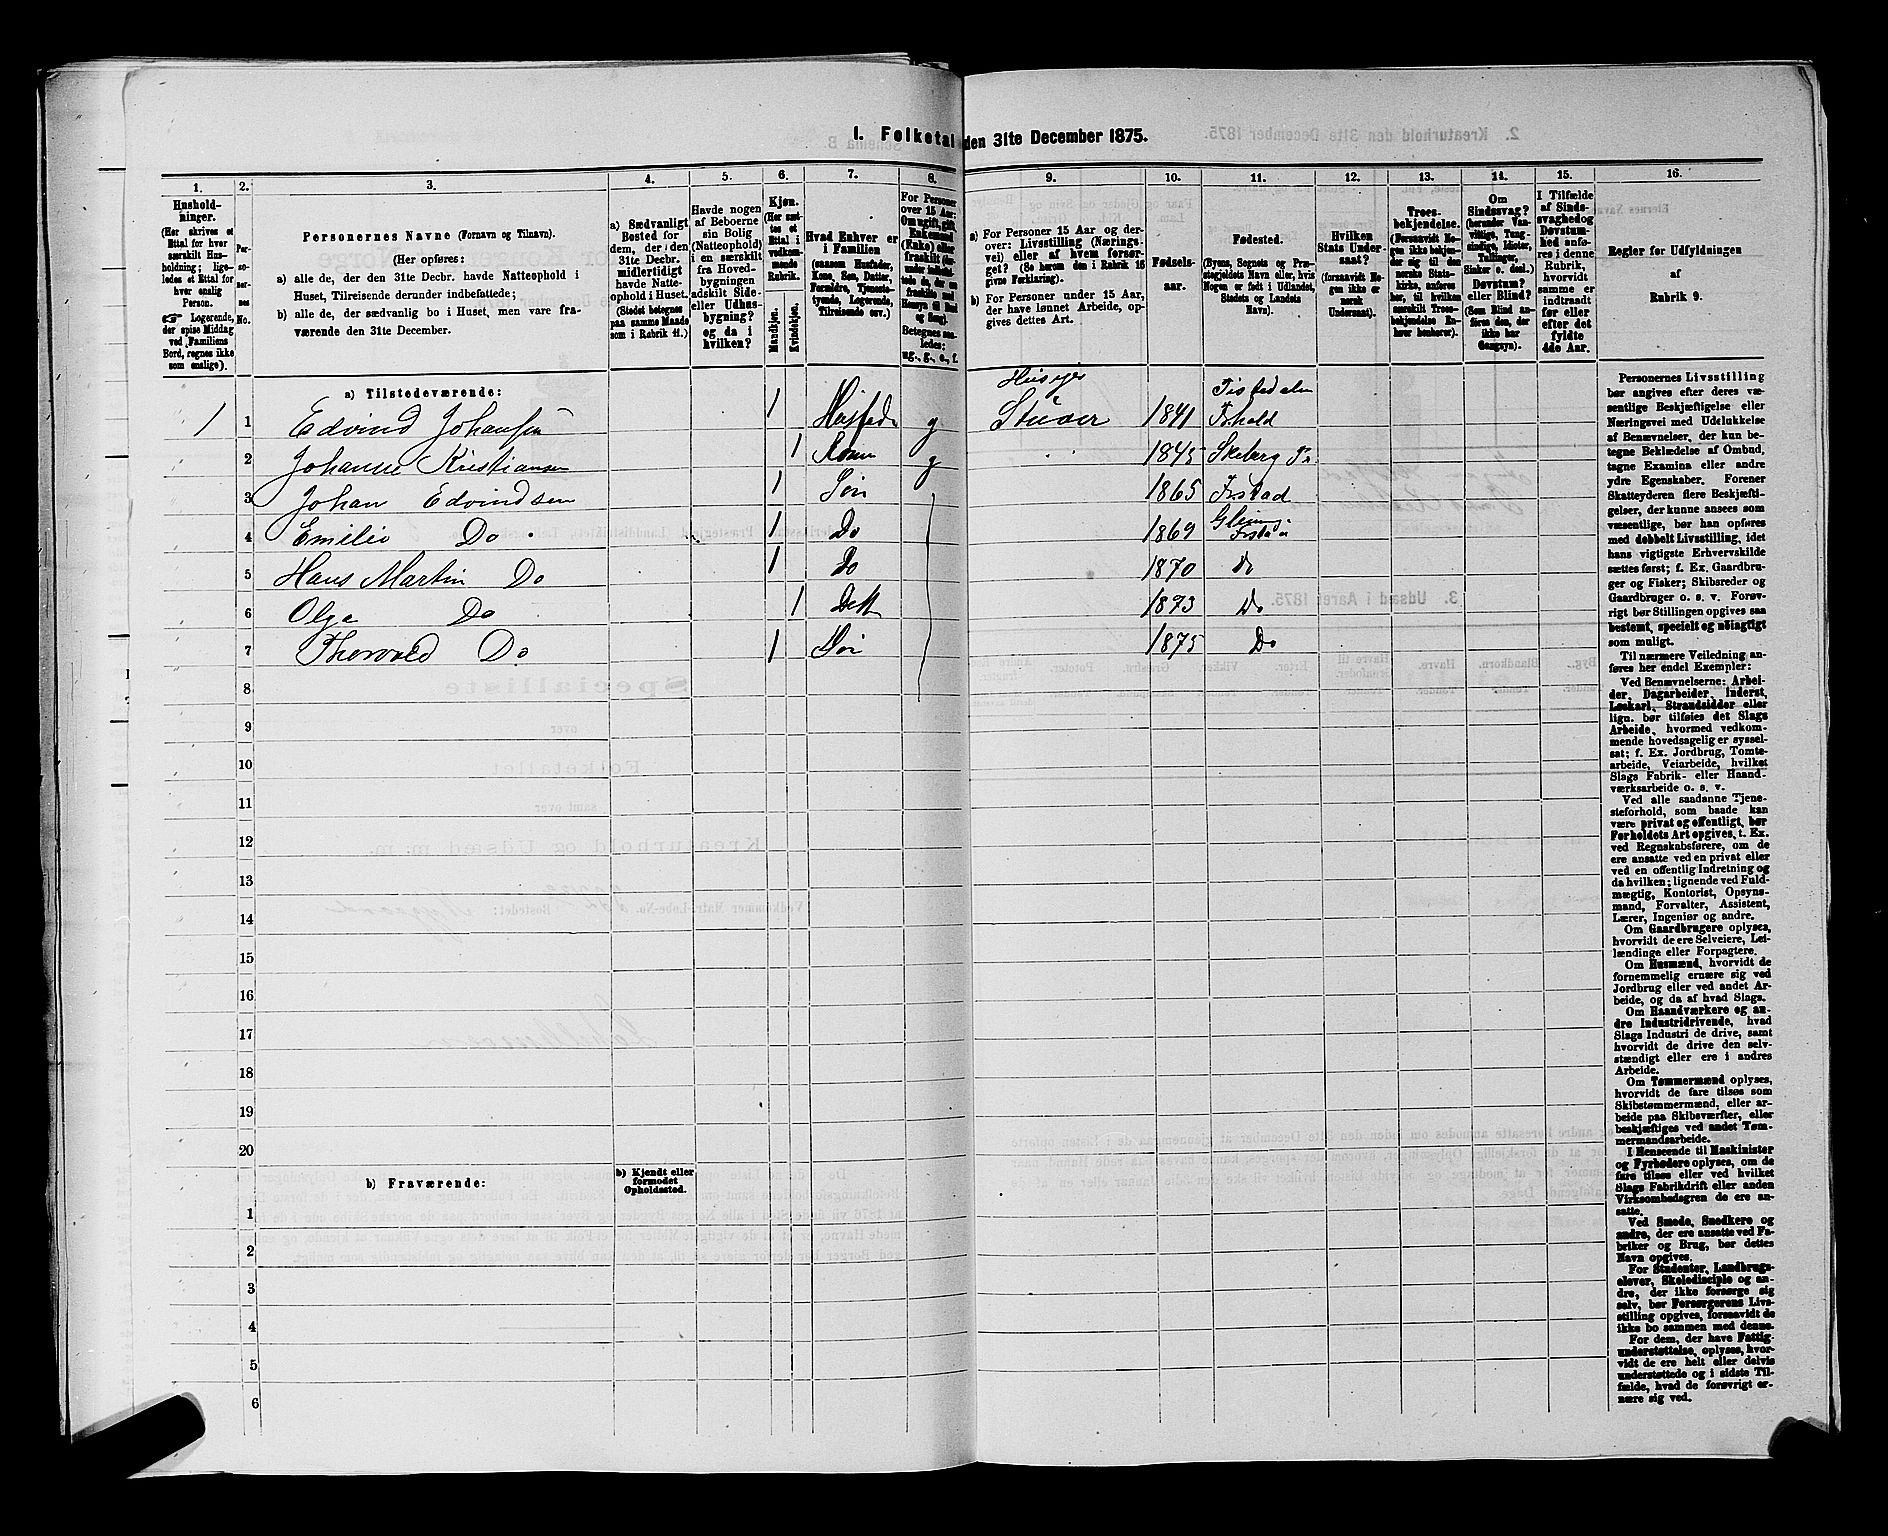 I. Folketal den 31te December 1875.
1.
Husholdninger.
(Her skrives et
Ettal for hver
særskilt Husholdning; ligeledes et Ettal for
hver enslig
Person.
☞ Logerende,
der spise Middag
ved Familiens
Bord, regnes ikke
som enslige).
2.
Personernes
No.
3.
Personernes Navne (Fornavn og Tilnavn).
(Her opføres:
a) alle de, der den 31te Decbr. havde Natteophold i
Huset, Tilreisende derunder indbefattede;
b) alle de, der sædvanlig bo i Huset, men vare fraværende den 31te December.
4.
a) Sædvanligt
Bosted for
dem, der den
31te Decbr.
midlertidigt
havde Natteophold i Huset.
(Stedet betegnes
paa samme Maade
som i Rubrik 11.)
5.
Havde nogen
af Beboerne
sin Bolig
(Natteophold)
i en særskilt
fra Hovedbygningen
adskilt Side- eller Udhusbygning?
og da i
hvilken?
6.
Kjøn.
(Her sættes et
Ettal i
vedkommende
Rubrik.
Mandkjøn.
Kvindekjøn.
7.
Hvad Enhver er
i Familien
(saasom Husfader,
Kone, Søn, Datter,
Forældre, Tjenestetyende, Logerende,
Tilreisende osv.)
8.
For Personer
over 15 Aar:
Om ugift, gift,
Enkemand
(Enke) eller
fraskilt
Betegnes saaledes:
ug., g., e., f.
9.
a) For Personer 15 Aar og derover: Livsstilling (Næringsvei) eller af hvem forsørget? (Se herom den i Rubrik 16
givne Forklaring).
b) For Personer under 15 Aar,
der have lønnet Arbeide, opgives dettes Art.
10.
Fødselsaar.
11.
Fødested.
(Byens, Sognets og Præstegjeldets Navn eller, hvis
Nogen er født i Udlandet,
Stedets og Landets
Navn).
12.
Hvilken
Stats Undersaat?
(forsaavidt Nogen ikke er
norsk
Undersaat).
13.
Troesbekjendelse.
(Forsaavidt Nogen ikke bekjender sig til den
norske Statskirke, anføres
her, til hvilken
særskilt Troesbekjendelse Enhver henhører).
14.
Om
Sindssvag?
(herunder Vanvittige, Tungsindige, Idioter,
Tullinger,
Sinker o. desl.)
Døvstum?
eller Blind?
(Som Blind anføres den, der
ikke har
Gangsyn).
15.
I Tilfælde
af Sindssvaghed og
Døvstumhed anføres i denne
Rubrik,
hvorvidt
samme er
indtraadt
før eller
efter det
fyldte
4de Aar.
16.
Regler før Udfyldningen
af
Rubrik 9.
a) Tilstedeværende:
1 1 Edvind Johansen 1 Husfader g Huseyer Stuver 1841 Tistedalen Frhald
2 Johanne Kristiansen 1 Kone g 1845 Skeberg
3 Johan Edvindsen 1 Søn 1865 Frstad
4 Emilio Do 1 Do 1869 Glemø
5 Hans Martin Do 1 Do 1870 Do
6 Olga Do 1 Dett 1873 Do
7 Thorvald Do 1 Søn 1875 Do
8
9
10
11
12
13
14
15
16
17
18
19
20
b) Fraværende:
b) Kjendt eller
formodet
Opholdssted.
1
2
3
4
5
6
Personernes Livsstilling
bør angives efter deres væsentlige Beskjæftigelse eller
Næringsvei med Udelukkelse
af Benævnelser, der kun betegne Beklædelse af Ombud,
tagne Examina eller andre
ydre Egenskaber. Forener
Skatteyderen flere Beskjæftigelser, der kunne ansees som
væsentlige, bør han opføres
med dobbelt Livsstilling, idet
hans vigtigste Erhvervskilde
sættes først; f. Ex. Gaardbruger og Fisker; Skibsreder og
Gaardbruger o. s. v. Forøvrigt bør Stillingen opgives saa
bestemt, specielt og nøiagtigt
som muligt.
Til nærmere Veiledning anføres her endel Exempler:
Ved Benævnelserne: Arbeider, Dagarbeider, Inderst,
Løskarl, Strandsidder eller
lign. bør tilføies det Slags
Arbeide, hvormed vedkommende hovedsagelig er sysselsat; f. Ex. Jordbrug, Tomtearbeide, Veiarbeide, hvilket
Slags Fabrik- eller Haandværksarbeide o. s. v.
Ved alle saadanne Tjenesteforhold, som baade kan
være privat og offentligt, bør
Forholdets Art opgives, t. Ex.
ved Regnskabsførere, om de
ere ansatte ved en privat eller
ved en offentlig Indretning og
da hvilken; lignende ved Fuldmægtig, Kontorist, Opsynsmand, Forvalter, Assistent,
Lærer, Ingeniør og andre.
Om Gaardbrugere oplyses,
hvorvidt de ere Selveiere, Leilændinge eller Forpagtere.
Om Husmænd, hvorvidt de
fornemmelig ernære sig ved
Jordbrug eller ved andet Arbeide, og da af hvad Slags.
Om Haandværkere og andre Industridrivende, hvad
Slags Industri de drive, samt
hvorvidt de drive den selvstændigt eller ere i andres
Arbeide.
Om Tømmermænd oplyses,
hvorvidt de fare tilsøs som
Skibstømmermænd, eller arbeide paa Skibsværfter, eller
beskjæftiges ved andet Tømmermandsarbeide.
I Henseende til Maskinister
og Fyrbødere oplyses, om de
fare tilsøs eller ved hvilket
Slags Fabrikdrift eller anden
Virksomhed­sgren de ere ansatte.
Ved Smede, Snedkere og
andre, der ere ansatte ved Fabriker og Brug, bør dettes
Navn opgives.
For Studenter, Landbrugselever, Skoledisciple og andre, der ikke forsørge sig
selv, bør Forsørgerens Livsstilling opgives, forsaavidt de
ikke bo sammen med denne.
For dem, der have Fattigunderstøttelse, oplyses, hvorvidt de ere helt eller delvis
understøttede og i sidste Tilfælde, hvad de forøvrigt ernære sig ved.